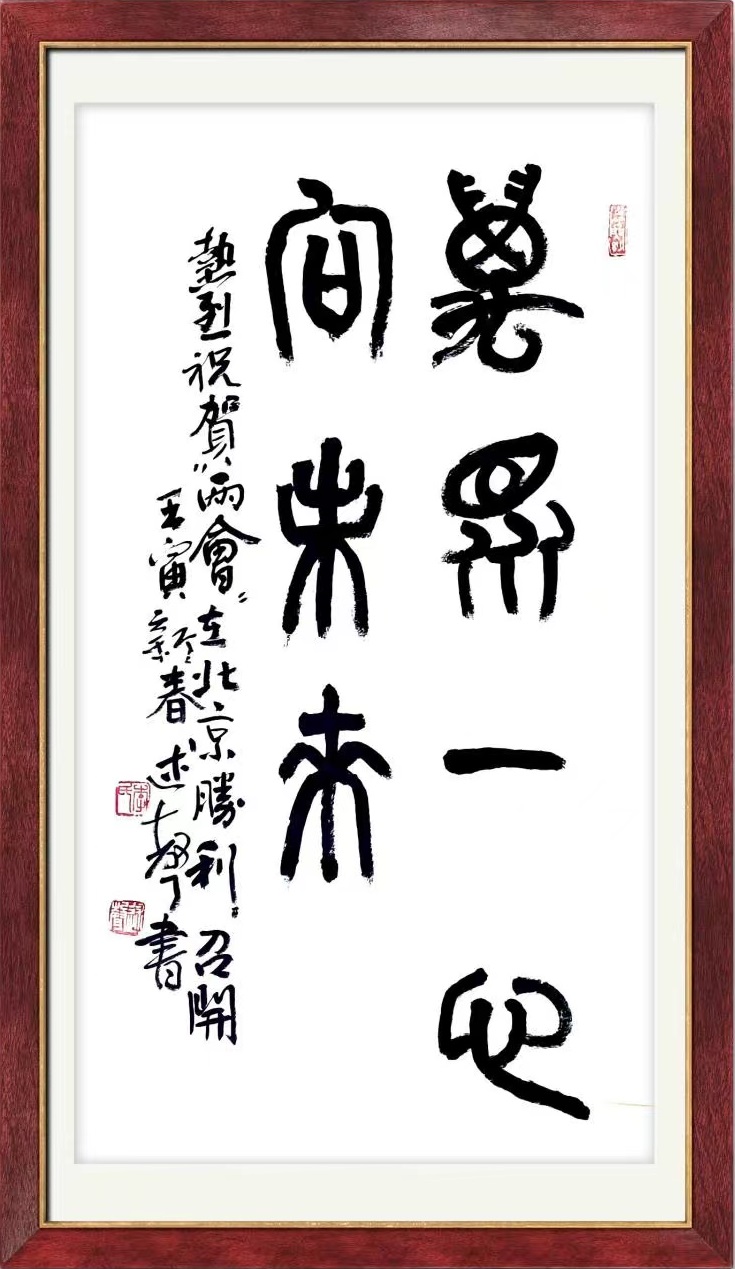 萬眾一心
向未来
熱烈祝賀"兩會"在北京勝利召開
壬寅新春述聲書